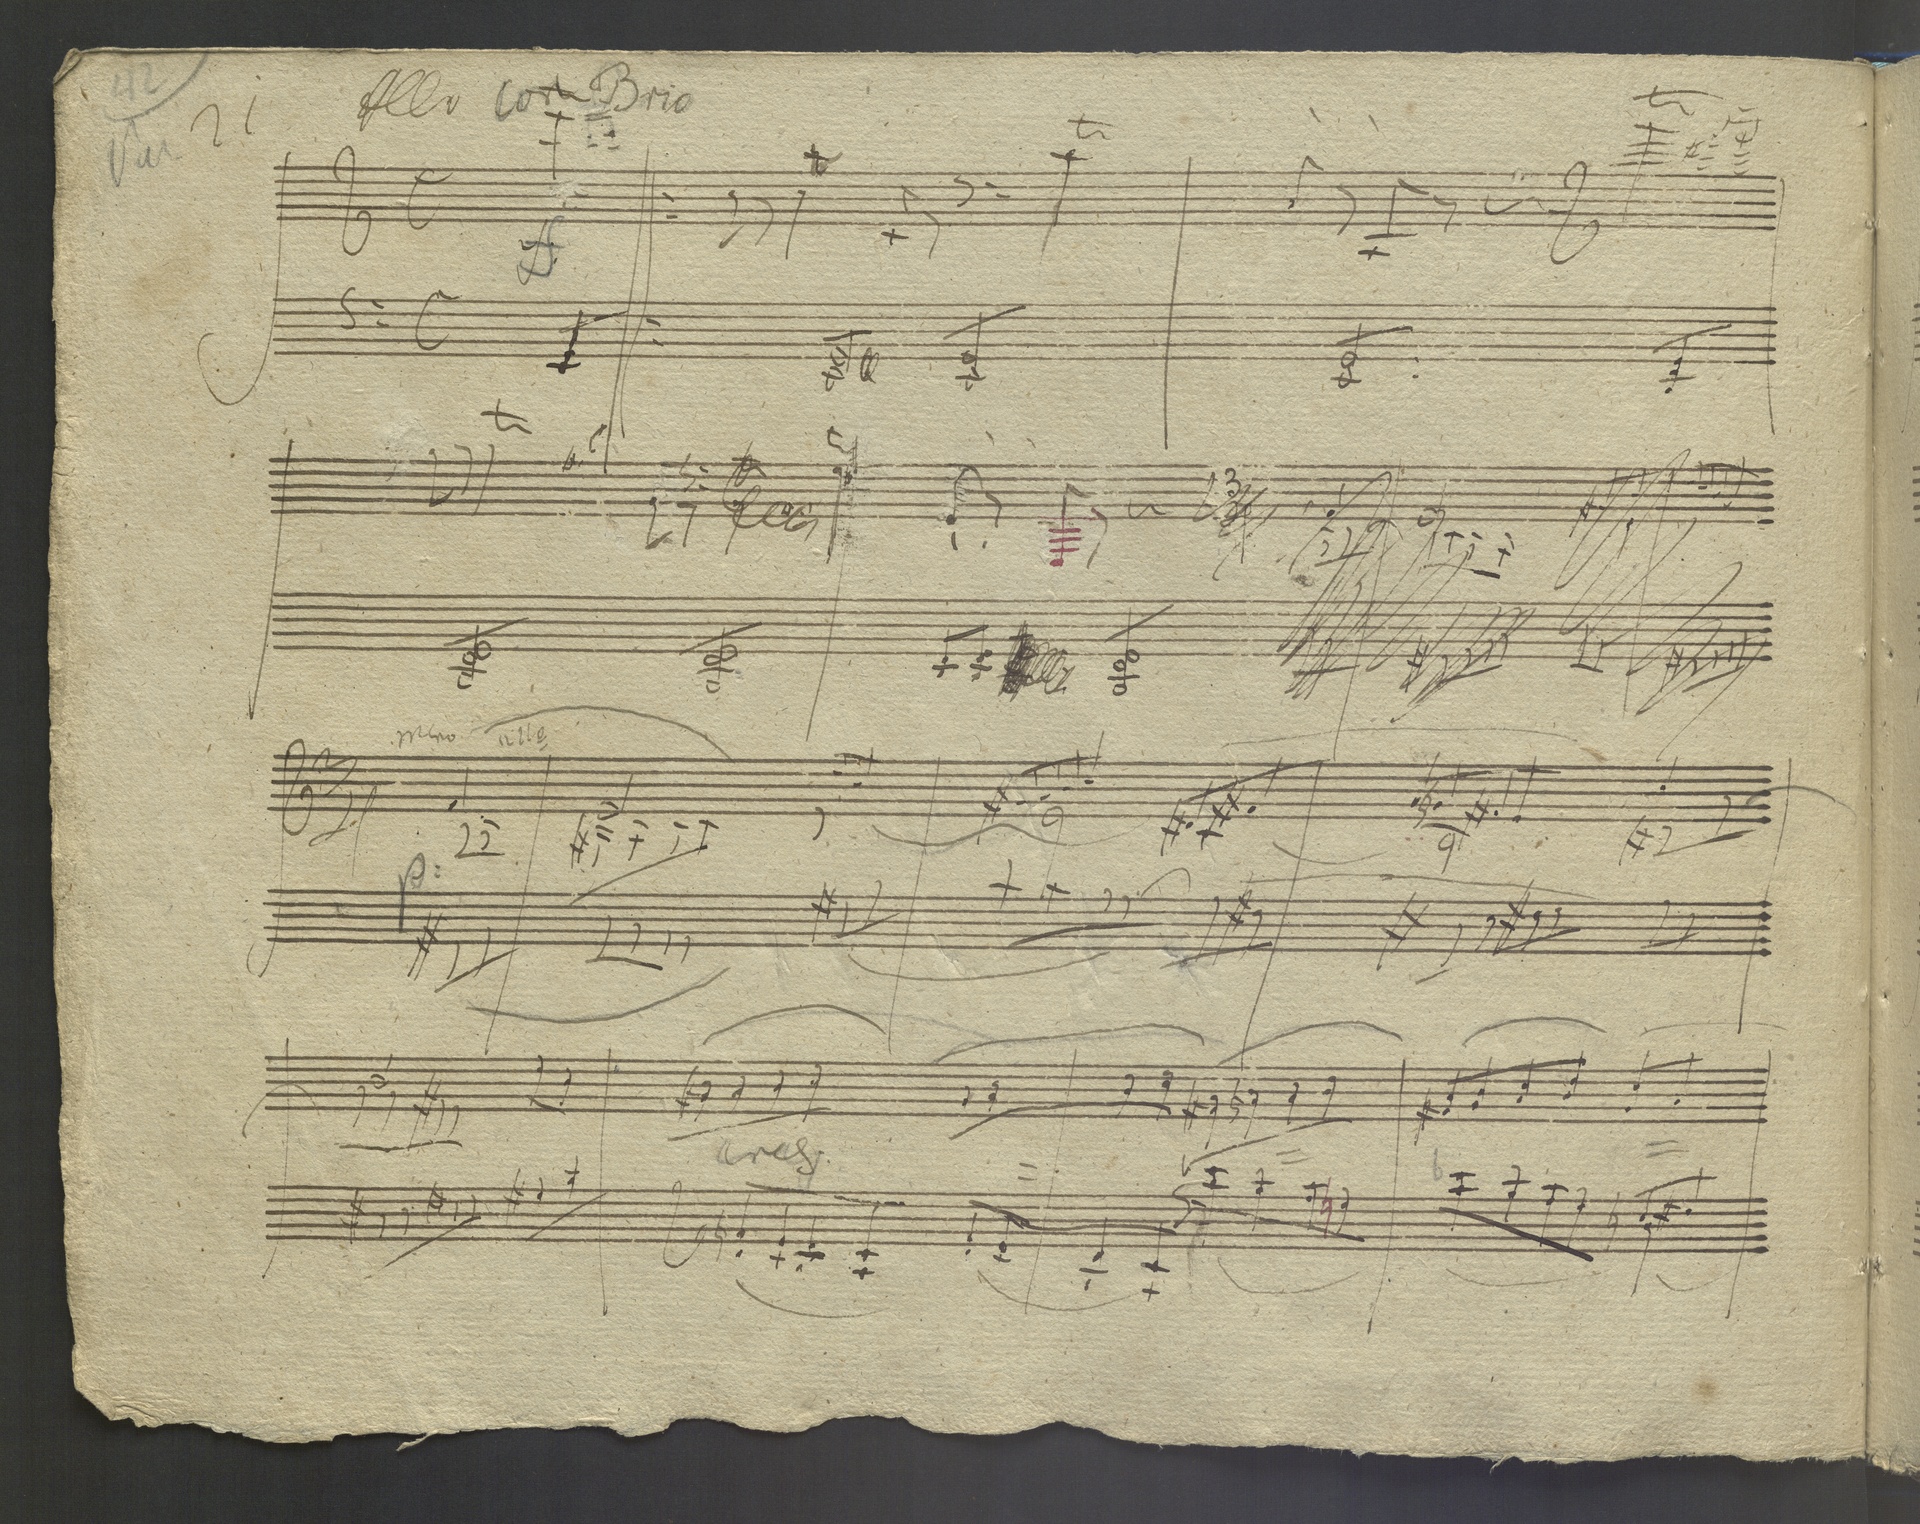 42
Var 21 Allo con Brio
tr
tr
ff
tr
3
meno allo
p:
cresc.